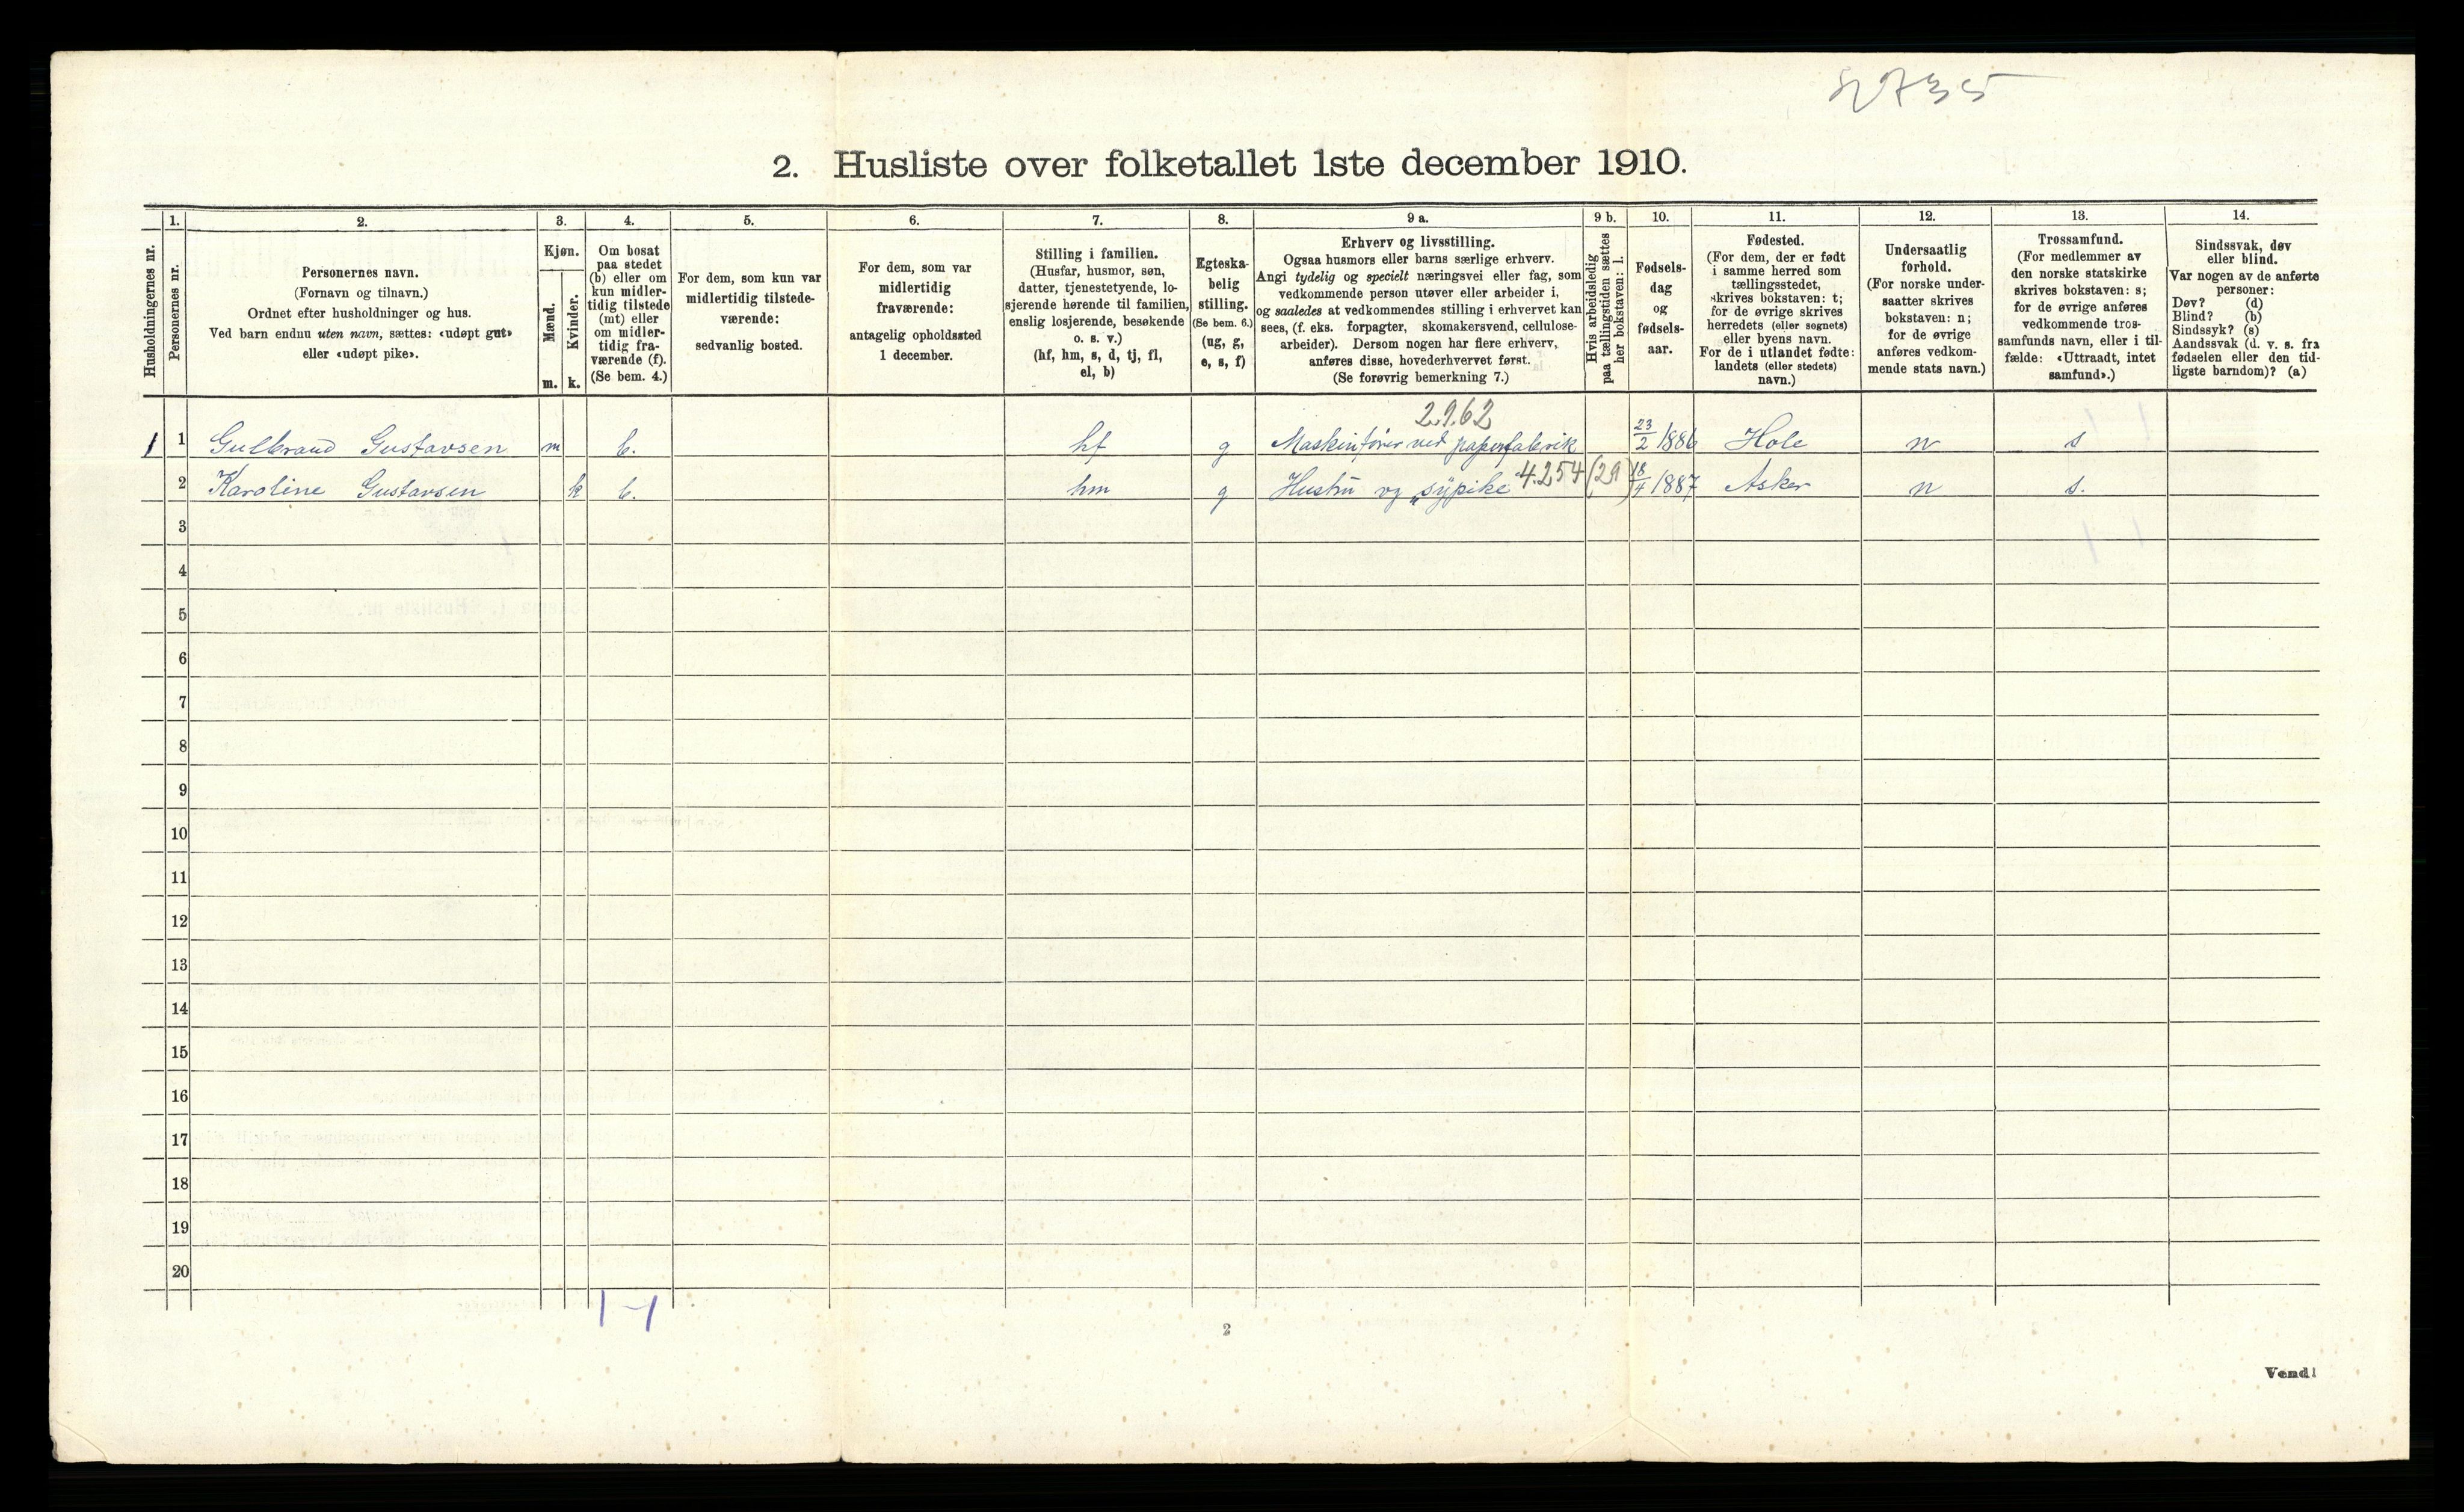 2735
2. Husliste over folketallet 1ste december 1910.
Husholdningernes nr.
1. Personernes nr.
2. Personernes navn.
(Fornavn og tilnavn.)
Ordnet efter husholdninger og hus.
Ved barn endnu uten navn, sættes: «udøpt gut»
eller «udøpt pike».
3. Kjøn.
Mænd. m.
Kvinder. k.
4. Om bosat
paa stedet
(b) eller om
kun midler-
tidig tilstede
(mt) eller
om midler-
tidig fra-
værende (f).
(Se bem. 4.)
5. For dem, som kun var
midlertidig tilstede-
værende:
sedvanlig bosted.
6. For dem, som var
midlertidig
fraværende:
antagelig opholdssted
1 december.
7. Stilling i familien.
(Husfar, husmor, søn,
datter, tjenestetyende, lo-
sjerende hørende til familien,
enslig losjerende, besøkende
o. s. v.)
(hf, hm, s, d, tj, fl,
el, b)
8. Egteska-
belig
stilling.
(Se bem. 6.)
(ug, g,
e, s, f)
9 a. Erhverv og livsstilling.
Ogsaa husmors eller barns særlige erhverv.
Angi tydelig og specielt næringsvei eller fag, som
vedkommende person utøver eller arbeider i,
og saaledes at vedkommendes stilling i erhvervet kan
sees, (f. eks. forpagter, skomakersvend, cellulose-
arbeider). Dersom nogen har flere erhverv,
anføres disse, hovederhvervet først.
(Se forøvrig bemerkning 7.)
9 b. Hvis arbeidsledig
paa tællingstiden sættes
her bokstaven: l.
10. Fødsels-
dag
og
fødsels-
aar.
11. Fødested.
(For dem, der er født
i samme herred som
tællingsstedet,
skrives bokstaven: t;
for de øvrige skrives
herredets (eller sognets)
eller byens navn.
For de i utlandet fødte:
landets (eller stedets)
navn.)
12. Undersaatlig
forhold.
(For norske under-
saatter skrives
bokstaven: n;
for de øvrige
anføres vedkom-
mende stats navn.)
13. Trossamfund.
(For medlemmer av
den norske statskirke
skrives bokstaven: s;
for de øvrige anføres
vedkommende tros-
samfunds navn, eller i til-
fælde: «Uttraadt, intet
samfund».)
14. Sindssvak, døv
eller blind.
Var nogen av de anførte
personer:
Døv? (d)
Blind? (b)
Sindssyk? (s)
Aandssvak (d. v. s. fra
fødselen eller den tid-
ligste barndom)? (a)
2.962
1 1 Gulbrand Gustavsen m b. hf g Maskinfører ved papirfabrik 23/2 1886 Hole n s
2 Karoline Gustavsen k b. hm g Hustru og „sypike 4.254 (29) 18/4 1887 Asker n s.
3
4
5
6
7
8
9
10
11
12
13
14
15
16
17
18
19
20
1 - 1
2
Vend!